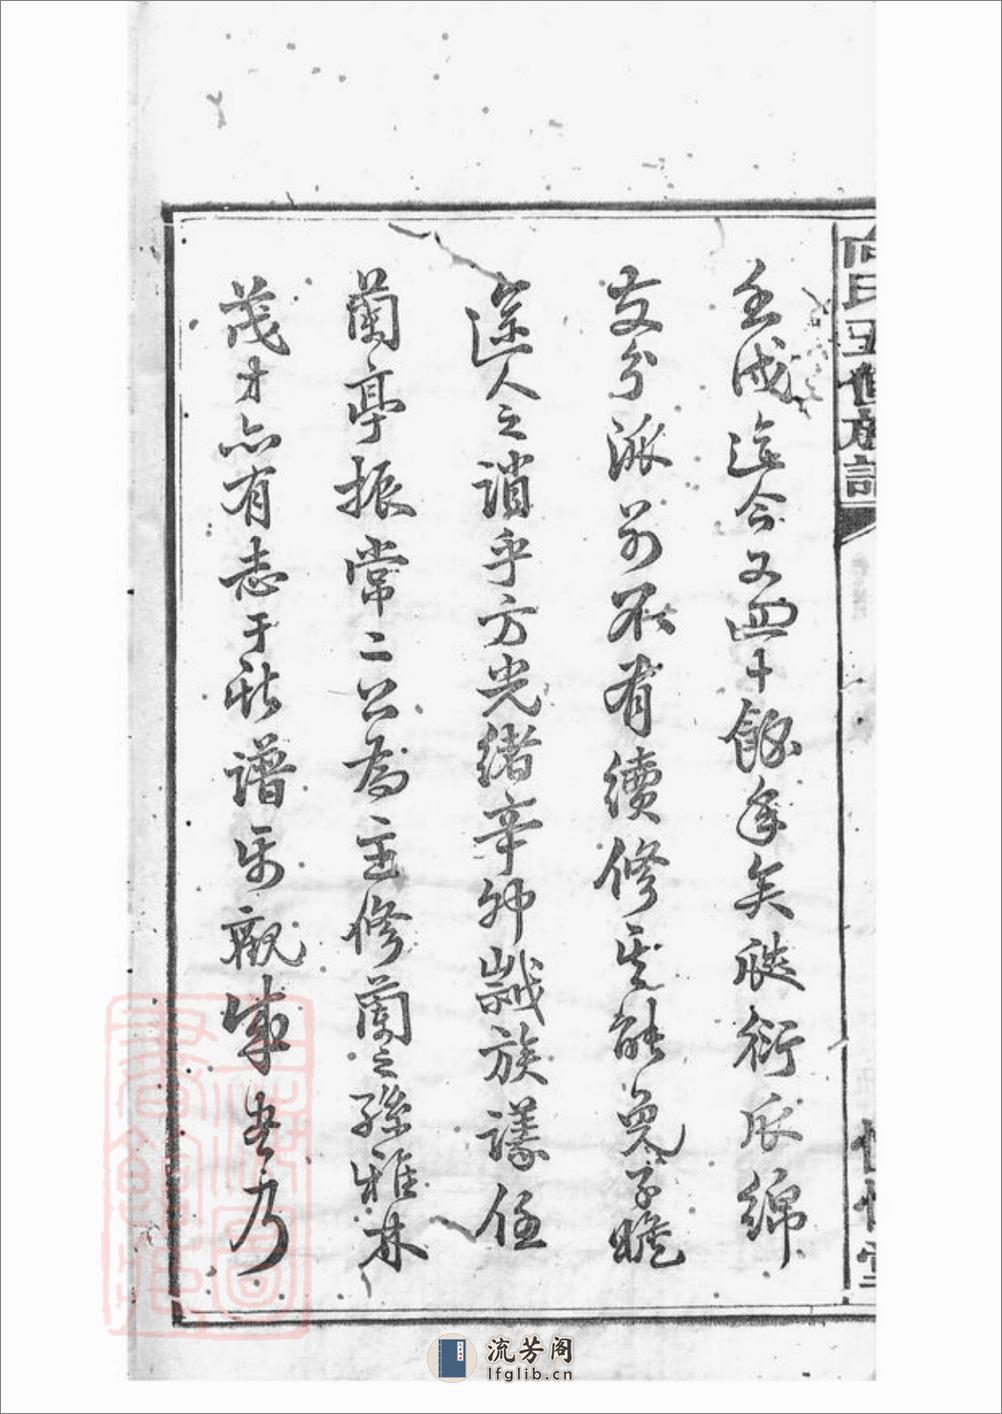 壬戌迄今又四十餘年矣㡹衍瓜綿
支分派別不有續修其能免子瞻
塗人之誚乎方光緒辛卯諴族議任
蘭亭振常二公為主修蘭之孫雅林
茂才亦有志于斯譜乐觀成事者乃
向氏五修族譜
流芳阁
lfglib.cn